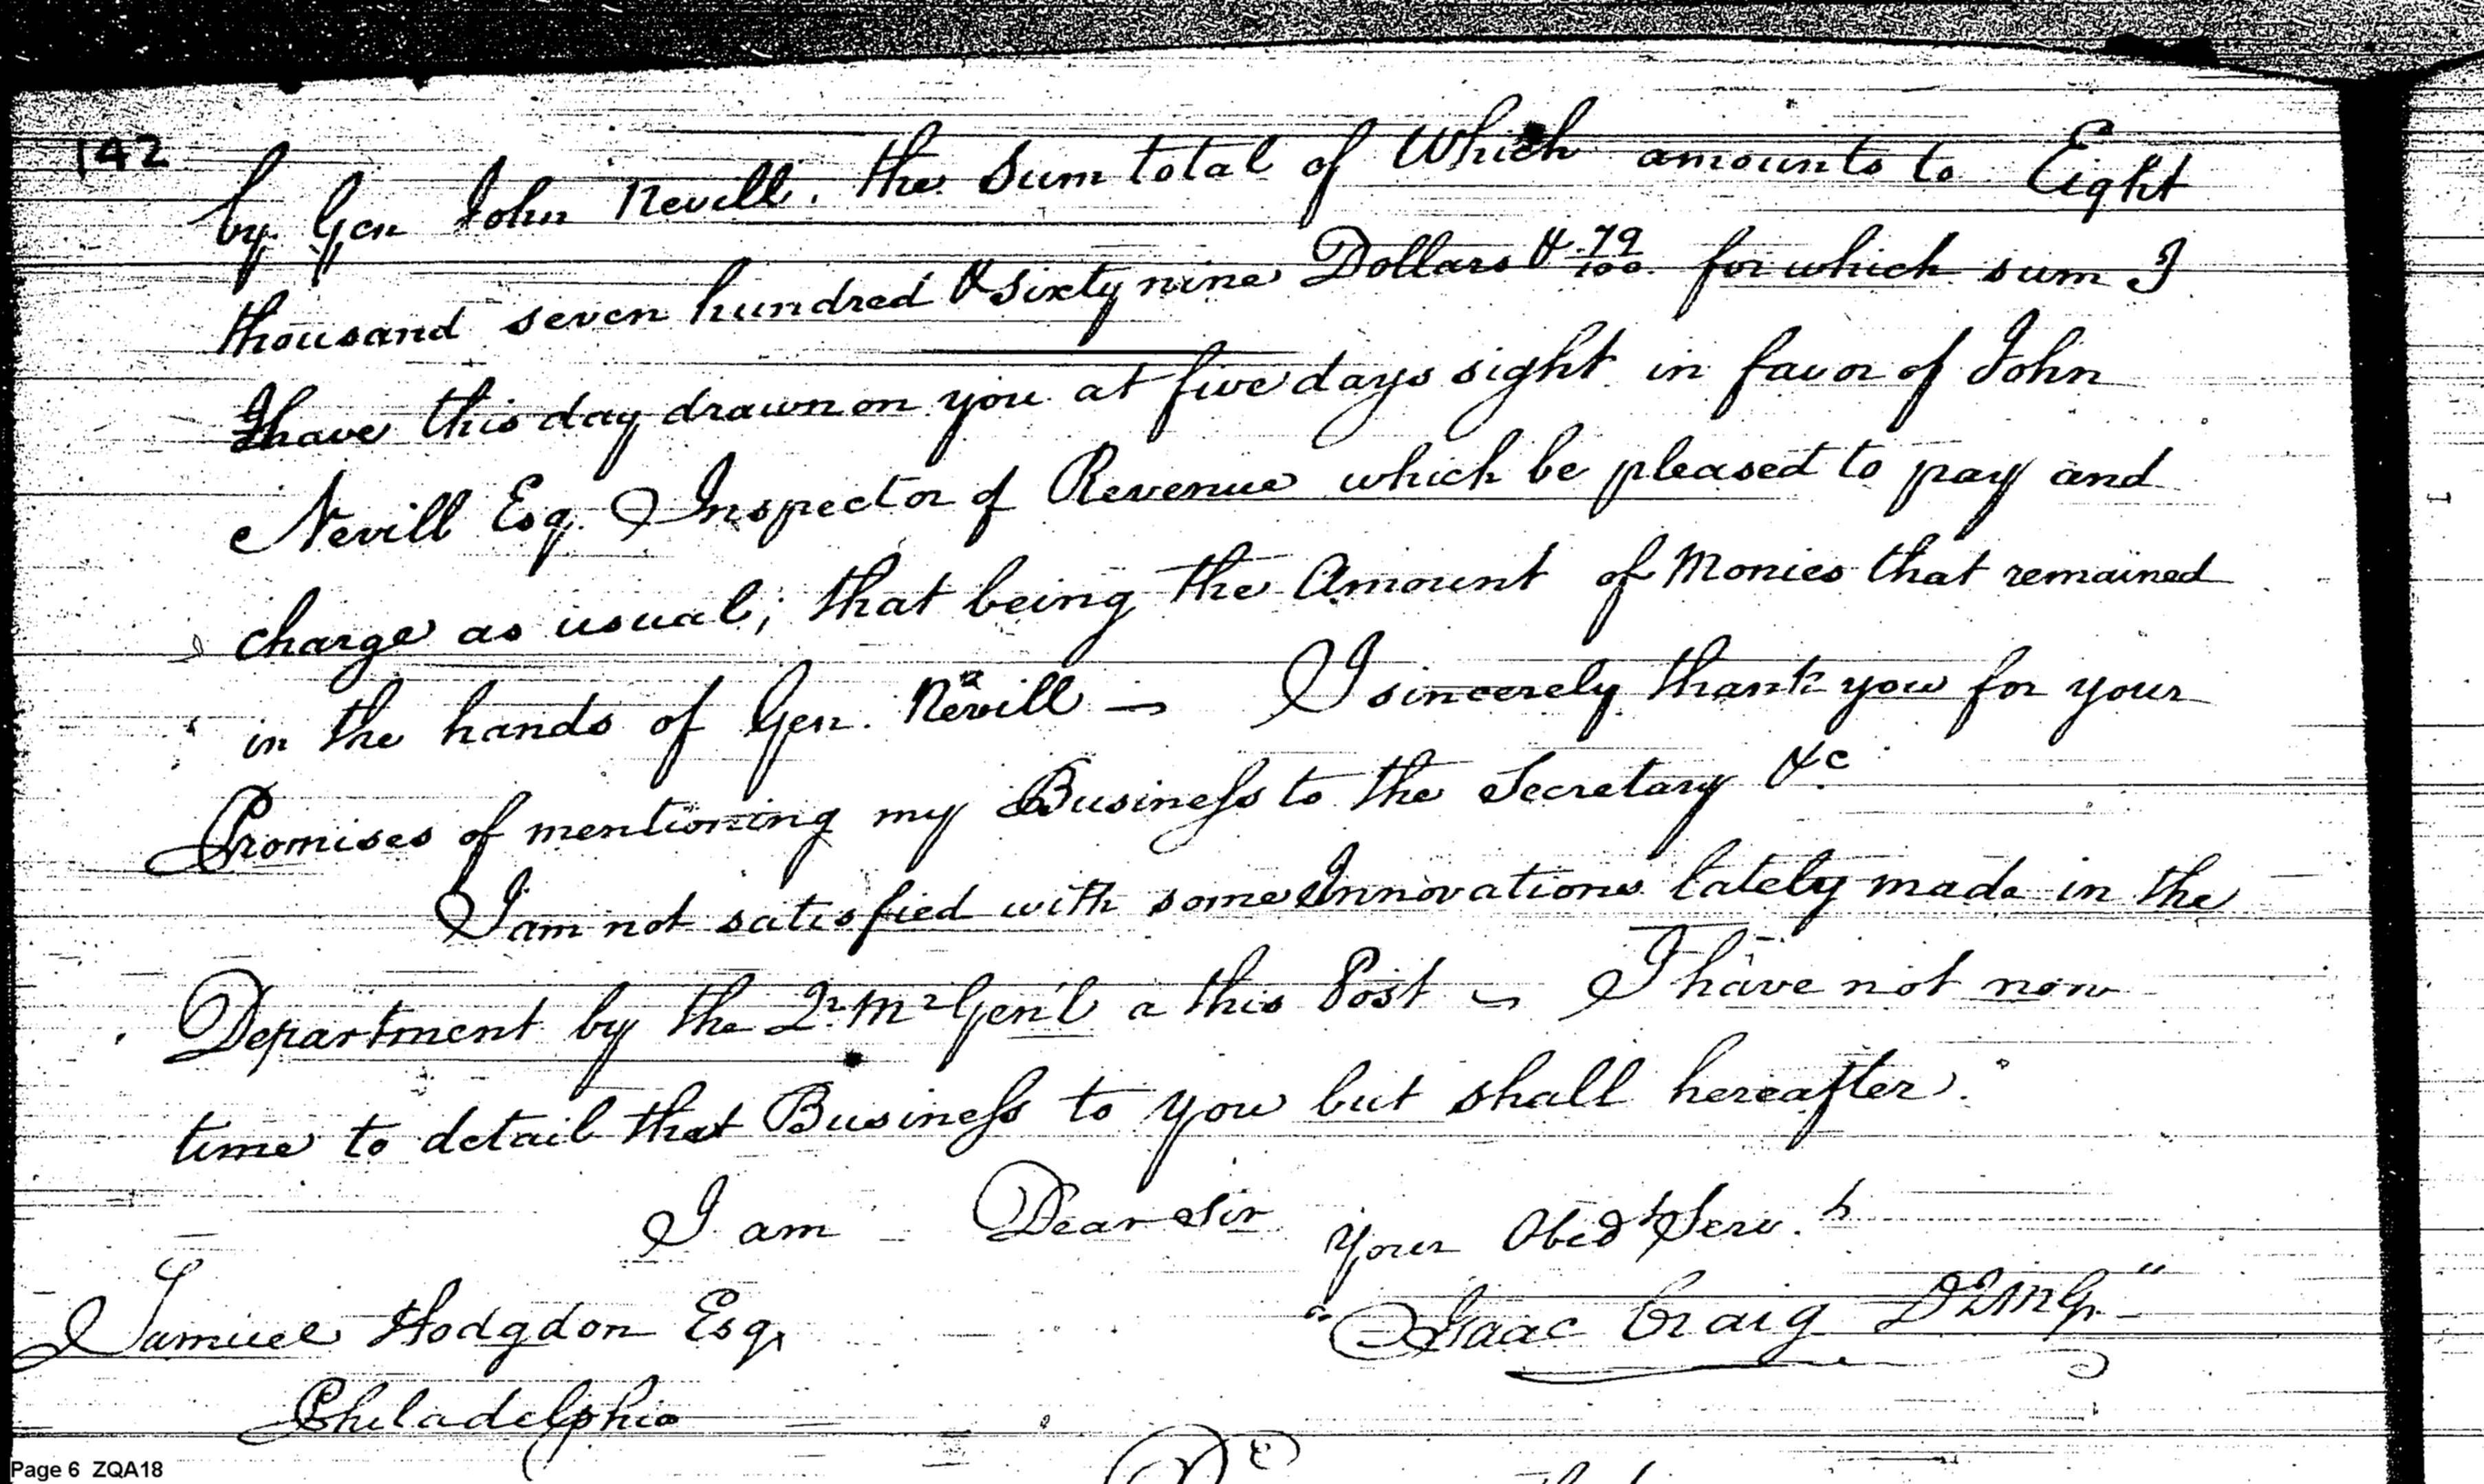 142
by Gen John Nevill. the Sum total of Which amounts to Eight
thousand seven hundred & sixty nine Dollars & 79/100 for which sum I
Ihave this day drawn on you at five days sight in favor of John
Nevill Esq. Inspector of Revenue which be pleased to pay and
charge as usual; that being the Amount of Monies that remained
in the hands of Gen. Nevill — I sincerely thank you for your
Promises of mentioning my Business to the Secretary &c.
I am not satisfied with some Innovations lately made in the
Department by the Qr. Mr Gen'l a this Post — I have not now
time to detail that Business to you but shall hereafter.
I am Dear Sir
your Obedt Serv.t
Samuel Hodgdon Esq
"Isaac Craig DQMG"
Philadelphia
Page 6 ZQA18